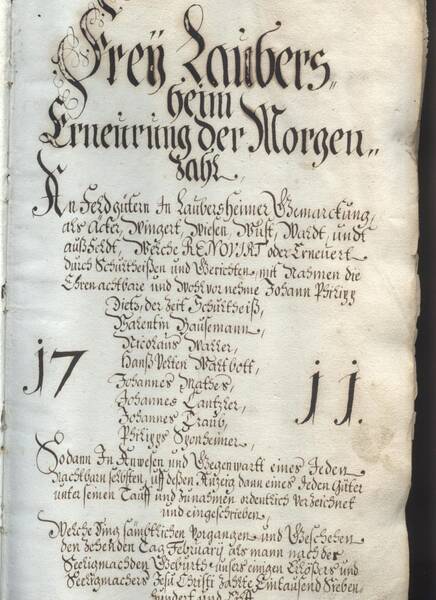 Freÿ Laubers„
heim
Erneurung der Morgen„
Zahl,
An Feldgütern In Laubersheimer Gemarckung,
als Acker, Wingert, Wiesen, Wust, Waldt, undt
außfeldt, Welche RENOVIRT oder Erneuert
durch Schultheißen und Gerichten, mit Nahmen die
Ehrenachtbare und Wohl vornehme Johann Philips
Dietz, der Zeit Schultheiß,
Valentin Hausemann,
Nicolaus Waller,
Hanß Velten Waltbott,
Johannes Mathes,
Johannes Cantzler,
Johannes Traub,
Philips Sponheimer,
17 11.
Sodann In Anwesen und Gegenwartt eines Jeden
Nachtbarn selbsten, uff deßen Anzeig dann eines Jeden Güter
unter seinen Tauff und Zunahmen ordentlich verzeichnet
und eingeschrieben,
Welche ding sämbtlichen vorgangen und Geschehen
den zehenden Tag February als mann nach der
Seeligmachden Geburth unsers einigen Erlößers und
Seeligmachers Jesu Christi zahlte Eintausend Sieben„
hundert und Eilff